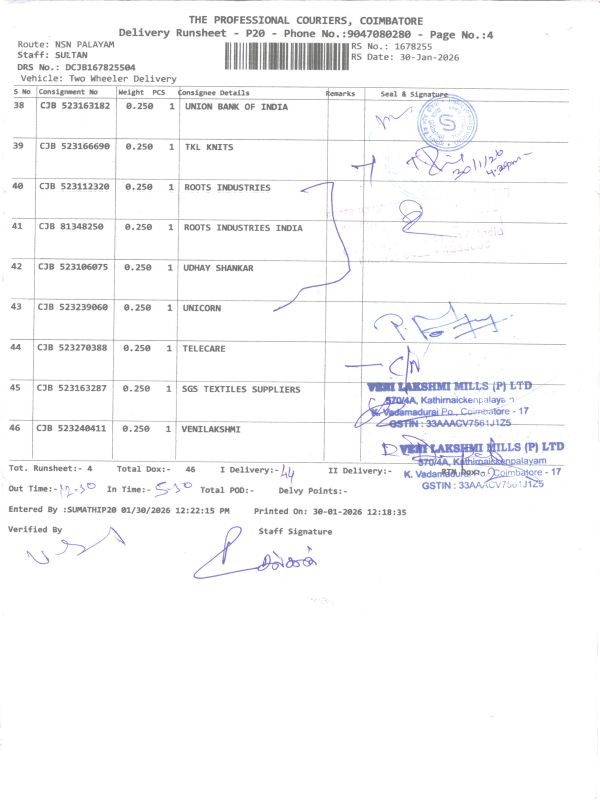 THE PROFESSIONAL COURIERS, COIMBATORE
Delivery Runsheet - P20 - Phone No.:9047080280 - Page No.:4
Route: NSN PALAYAM
RS No.: 1678255
Staff: SULTAN
RS Date: 30-Jan-2026
DRS No.: DCJB167825504
Vehicle: Two Wheeler Delivery
S No Consignment No Weight PCS Consignee Details Remarks Seal & Signature
38 CJB 523163182 0.250 1 UNION BANK OF INDIA
39 CJB 523166690 0.250 1 TKL KNITS
30/1/26
40 CJB 523112320 0.250 1 ROOTS INDUSTRIES
41 CJB 81348250 0.250 1 ROOTS INDUSTRIES INDIA
42 CJB 523106075 0.250 1 UDHAY SHANKAR
43 CJB 523239060 0.250 1 UNICORN
44 CJB 523270388 0.250 1 TELECARE
C/N
45 CJB 523163287 0.250 1 SGS TEXTILES SUPPLIERS
VENI LAKSHMI MILLS (P) LTD
570/4A, Kathirnaickenpalayam
K. Vadamadurai Po., Coimbatore - 17
GSTIN : 33AAACV7561J1Z5
46 CJB 523240411 0.250 1 VENILAKSHMI
VENI LAKSHMI MILLS (P) LTD
570/4A, Kathirnaickenpalayam
K. Vadamadurai Po., Coimbatore - 17
GSTIN : 33AAACV7561J1Z5
Tot. Runsheet:- 4 Total Dox:- 46 I Delivery:- 44 II Delivery:- RTN Dox:- 2
Out Time:- 12-30 In Time:- 5-30 Total POD:- Delvy Points:-
Entered By :SUMATHIP20 01/30/2026 12:22:15 PM Printed On: 30-01-2026 12:18:35
Verified By Staff Signature